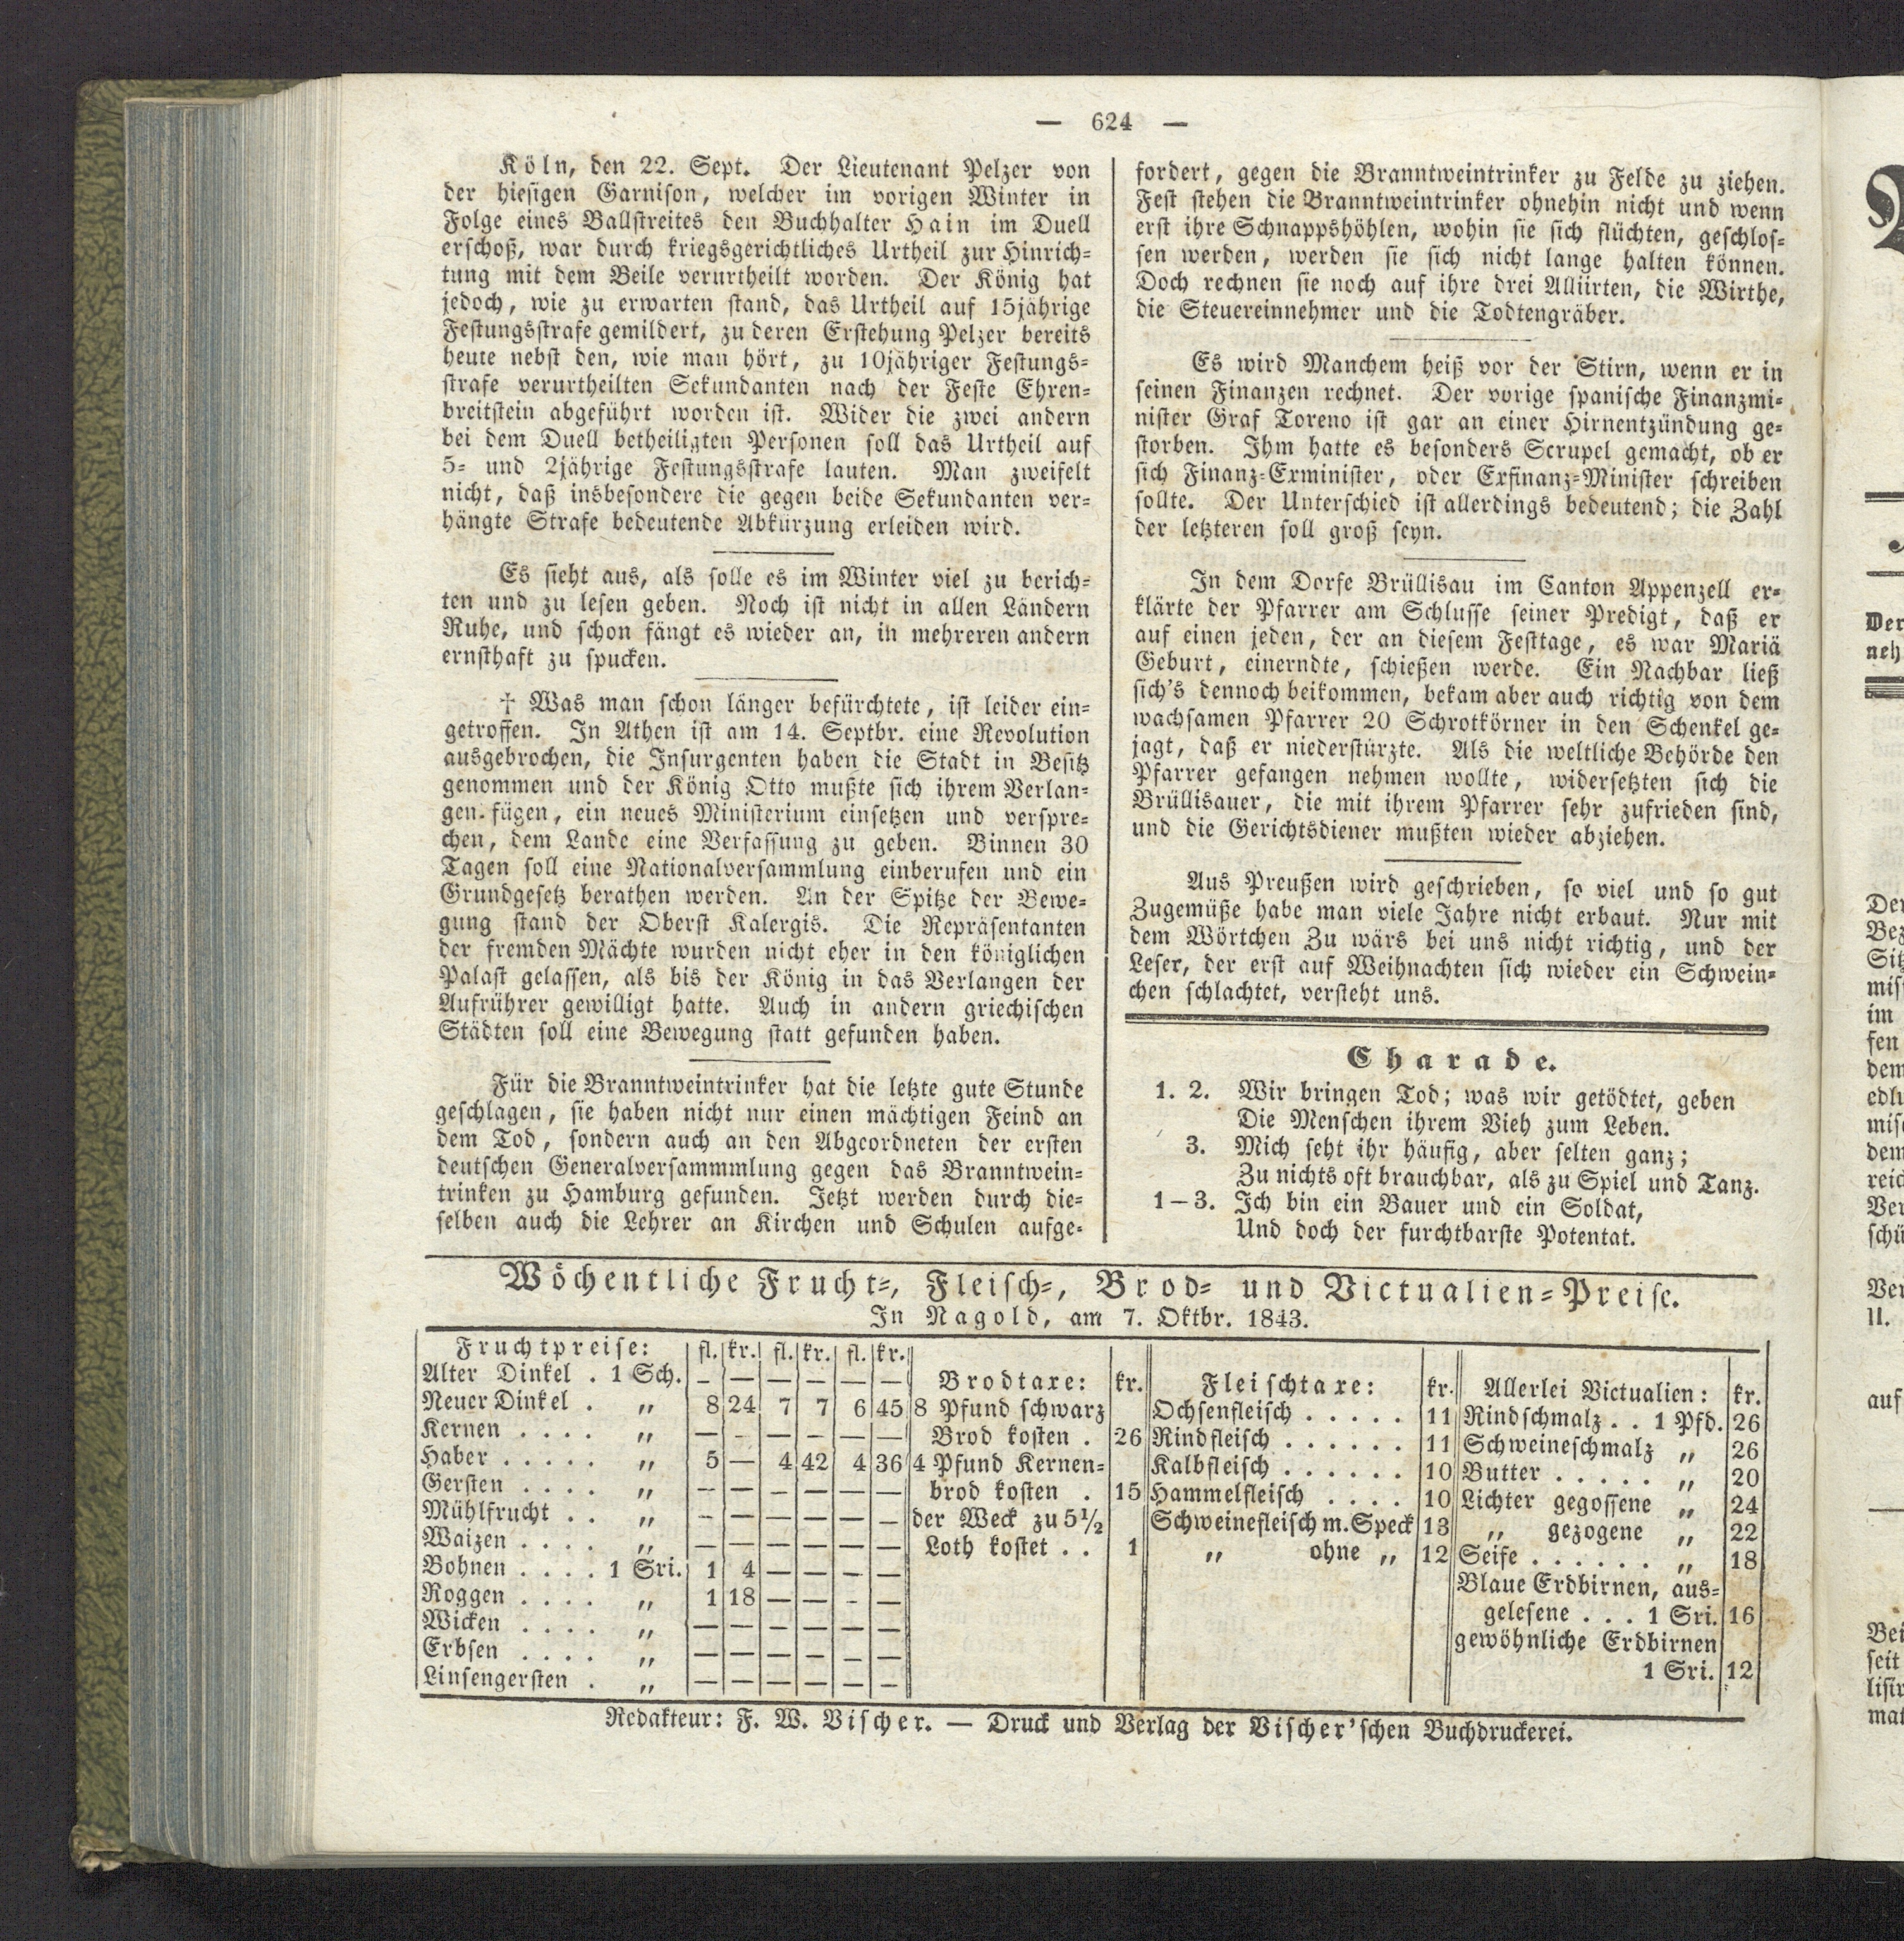 — 624 —
Köln, den 22. Sept. Der Lieutenant Pelzer von
der hiesigen Garnison, welcher im vorigen Winter in
Folge eines Ballstreites den Buchhalter Hain im Duell
erschoß, war durch kriegsgerichtliches Urtheil zur Hinrich-
tung mit dem Beile verurtheilt worden. Der König hat
jedoch, wie zu erwarten stand, das Urtheil auf 15jährige
Festungsstrafe gemildert, zu deren Erstehung Pelzer bereits
heute nebst den, wie man hört, zu 10jähriger Festungs-
strafe verurtheilten Sekundanten nach der Feste Ehren-
breitstein abgeführt worden ist. Wider die zwei andern
bei dem Duell betheiligten Personen soll das Urtheil auf
5- und 2jährige Festungsstrafe lauten. Man zweifelt
nicht, daß insbesondere die gegen beide Sekundanten ver-
hängte Strafe bedeutende Abkürzung erleiden wird.
Es sieht aus, als solle es im Winter viel zu berich-
ten und zu lesen geben. Noch ist nicht in allen Ländern
Ruhe, und schon fängt es wieder an, in mehreren andern
ernsthaft zu spucken.
† Was man schon länger befürchtete, ist leider ein-
getroffen. In Athen ist am 14. Septbr. eine Revolution
ausgebrochen, die Insurgenten haben die Stadt in Besitz
genommen und der König Otto mußte sich ihrem Verlan-
gen fügen, ein neues Ministerium einsetzen und verspre-
chen, dem Lande eine Verfassung zu geben. Binnen 30
Tagen soll eine Nationalversammlung einberufen und ein
Grundgesetz berathen werden. An der Spitze der Bewe-
gung stand der Oberst Kalergis. Die Repräsentanten
der fremden Mächte wurden nicht eher in den königlichen
Palast gelassen, als bis der König in das Verlangen der
Aufrührer gewilligt hatte. Auch in andern griechischen
Städten soll eine Bewegung statt gefunden haben.
Für die Branntweintrinker hat die letzte gute Stunde
geschlagen, sie haben nicht nur einen mächtigen Feind an
dem Tod, sondern auch an den Abgeordneten der ersten
deutschen Generalversammmlung gegen das Branntwein-
trinken zu Hamburg gefunden. Jetzt werden durch die-
selben auch die Lehrer an Kirchen und Schulen aufge-
fordert, gegen die Branntweintrinker zu Felde zu ziehen.
Fest stehen die Branntweintrinker ohnehin nicht und wenn
erst ihre Schnappshöhlen, wohin sie sich flüchten, geschlos-
sen werden, werden sie sich nicht lange halten können.
Doch rechnen sie noch auf ihre drei Alliirten, die Wirthe,
die Steuereinnehmer und die Todtengräber.
Es wird Manchem heiß vor der Stirn, wenn er in
seinen Finanzen rechnet. Der vorige spanische Finanzmi-
nister Graf Toreno ist gar an einer Hirnentzündung ge-
storben. Ihm hatte es besonders Scrupel gemacht, ob er
sich Finanz-Exminister, oder Exfinanz-Minister schreiben
sollte. Der Unterschied ist allerdings bedeutend; die Zahl
der letzteren soll groß seyn.
In dem Dorfe Brüllisau im Canton Appenzell er-
klärte der Pfarrer am Schlusse seiner Predigt, daß er
auf einen jeden, der an diesem Festtage, es war Mariä
Geburt, einerndte, schießen werde. Ein Nachbar ließ
sich's dennoch beikommen, bekam aber auch richtig von dem
wachsamen Pfarrer 20 Schrotkörner in den Schenkel ge-
jagt, daß er niederstürzte. Als die weltliche Behörde den
Pfarrer gefangen nehmen wollte, widersetzten sich die
Brüllisauer, die mit ihrem Pfarrer sehr zufrieden sind,
und die Gerichtsdiener mußten wieder abziehen.
Aus Preußen wird geschrieben, so viel und so gut
Zugemüße habe man viele Jahre nicht erbaut. Nur mit
dem Wörtchen Zu wärs bei uns nicht richtig, und der
Leser, der erst auf Weihnachten sich wieder ein Schwein-
chen schlachtet, versteht uns.
Charade.
1. 2. Wir bringen Tod; was wir getödtet, geben
Die Menschen ihrem Vieh zum Leben.
3. Mich seht ihr häufig, aber selten ganz;
Zu nichts oft brauchbar, als zu Spiel und Tanz.
1—3. Ich bin ein Bauer und ein Soldat,
Und doch der furchtbarste Potentat.
Wöchentliche Frucht-, Fleisch-, Brod- und Victualien-Preise.
In Nagold, am 7. Oktbr. 1843.
Fruchtpreise: fl. kr. fl. kr. fl. kr.
Alter Dinkel . 1 Sch. — — — — — —
Neuer Dinkel . „ 8 24 7 7 6 45
Kernen . . . . „ — — — — — —
Haber . . . . . „ 5 — 4 42 4 36
Gersten . . . . „ — — — — — —
Mühlfrucht . . „ — — — — — —
Waizen . . . . „ — — — — — —
Bohnen . . . . 1 Sri. 1 4 — — — —
Roggen . . . . „ 1 18 — — — —
Wicken . . . . „ — — — — — —
Erbsen . . . . „ — — — — — —
Linsengersten . „ — — — — — —
Brodtaxe: kr.
8 Pfund schwarz
Brod kosten . 26
4 Pfund Kernen-
brod kosten . 15
der Weck zu 5½
Loth kostet . . 1
Fleischtaxe: kr.
Ochsenfleisch . . . . . 11
Rindfleisch . . . . . . 11
Kalbfleisch . . . . . . 10
Hammelfleisch . . . . 10
Schweinefleisch m. Speck 13
„ ohne „ 12
Allerlei Victualien: kr.
Rindschmalz . . 1 Pfd. 26
Schweineschmalz „ 26
Butter . . . . . „ 20
Lichter gegossene „ 24
„ gezogene „ 22
Seife . . . . . . „ 18
Blaue Erdbirnen, aus-
gelesene . . . 1 Sri. 16
gewöhnliche Erdbirnen
1 Sri. 12
Redakteur: F. W. Vischer. — Druck und Verlag der Vischer'schen Buchdruckerei.